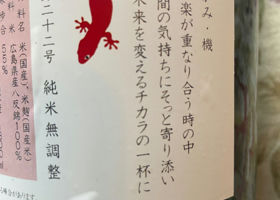 み・機
楽が重なり合う時の中
間の気持ちにそっと寄り添い
未来を変えるチカラの一杯に
二十二号 純米無調整
料名 米(国産)、米麹(国産米)
広島県産 八反錦100%
歩合 55%